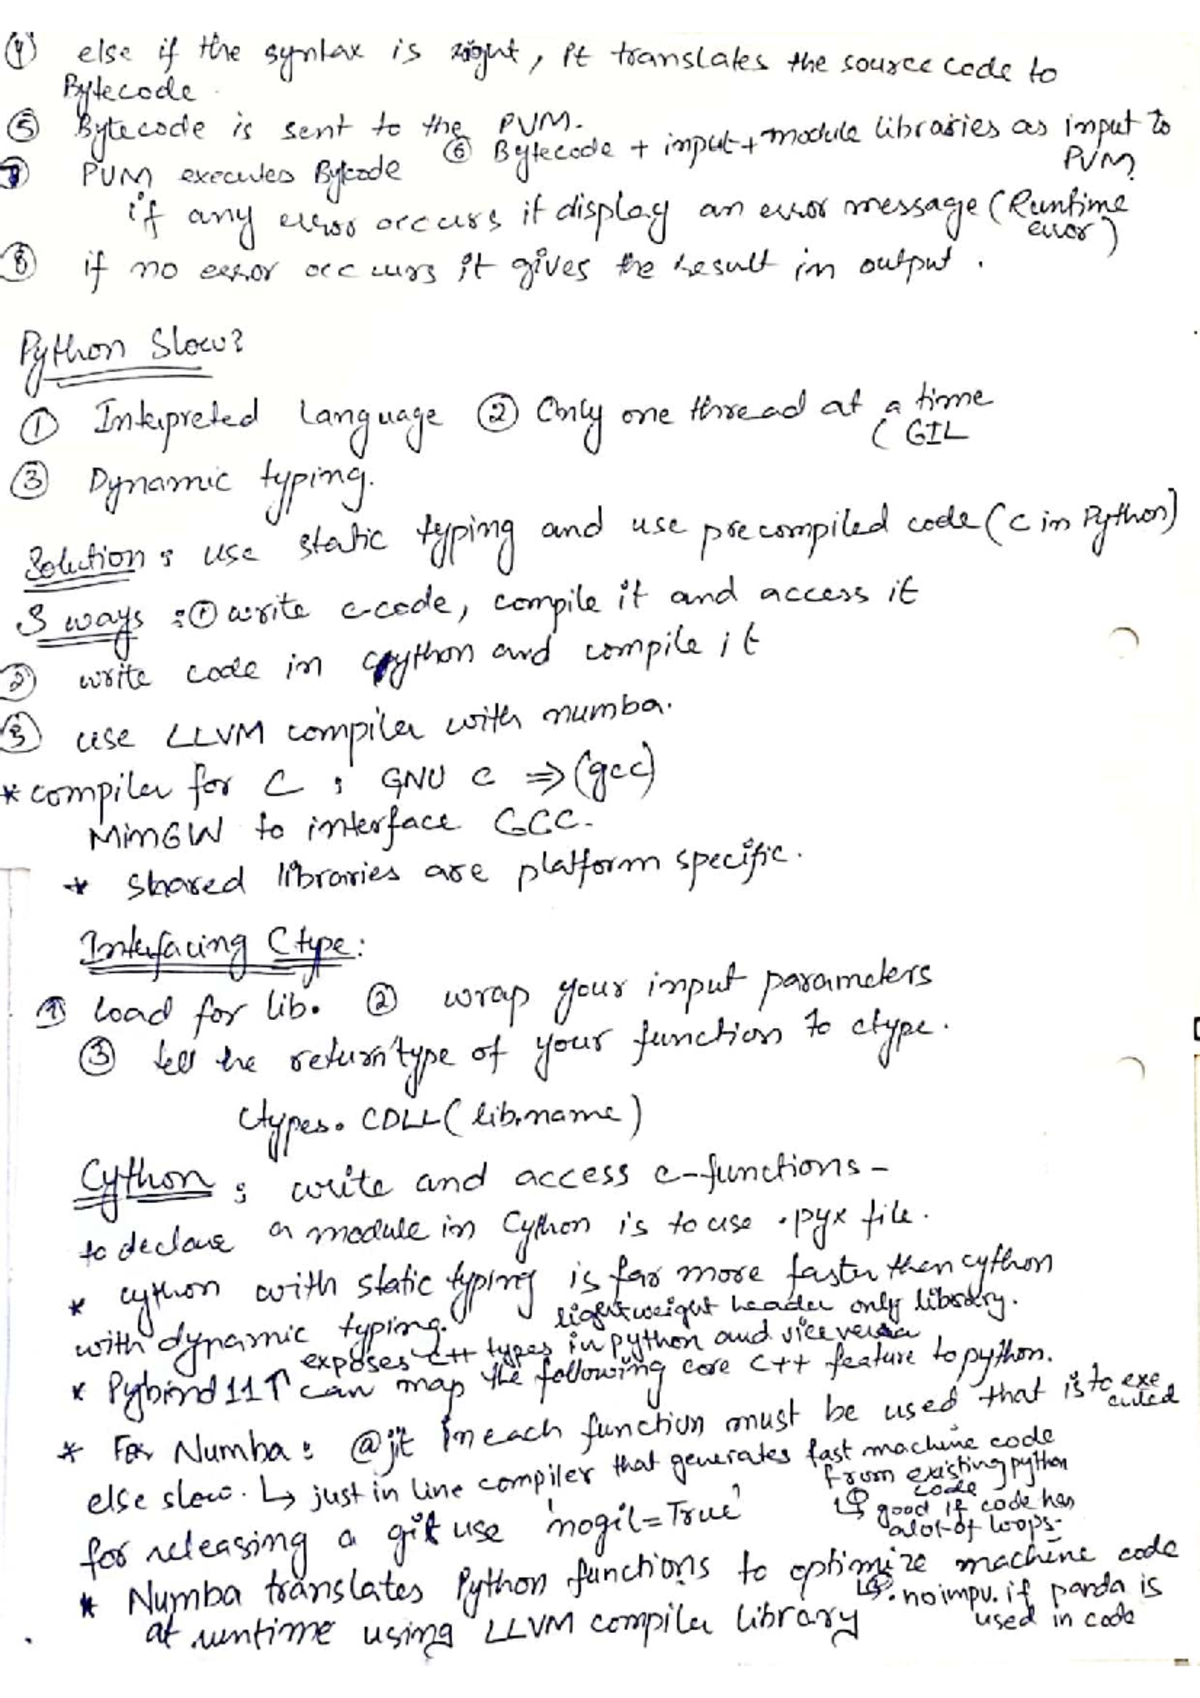 ④ else if the syntax is right, it translates the source code to
Bytecode.
⑤ Bytecode is sent to the PVM.
⑥ Bytecode + input + module libraries as input to
PVM
⑦ PVM executes Bytcode
if any error occurs it display an error message (Runtime
error)
⑧ if no error occurs it gives the result in output.
Python Slow?
① Interpreted language ② Only one thread at a time
( GIL
③ Dynamic typing.
Solution : use static typing and use precompiled code (C in Python)
3 ways : ① write c-code, compile it and access it
② write code in cython and compile it
③ use LLVM compiler with numba.
* compiler for C : GNU C ⇒ (gcc)
MinGW to interface GCC.
* Shared libraries are platform specific.
Interfacing Ctype:
① load for lib. ② wrap your input parameters
③ tell the return type of your function to ctype.
Ctypes. CDLL( lib.name)
Cython : write and access c-functions -
to declare a module in Cython is to use .pyx file.
* cython with static typing is far more faster then cython
with dynamic typing.
lightweight header only library.
exposes C++ types in python and vice versa
* Pybind11↑ can map the following core C++ feature to python.
* For Numba : @jit in each function must be used that is to exe
cuted
else slow. ↳ just in line compiler that generates fast machine code
from existing python
code
↳ good if code has
alot of loops.
for releasing a gil use 'nogil=True'
* Numba translates Python functions to optimize machine code
↳ . no impu. if panda is
used in code
at runtime using LLVM compiler library